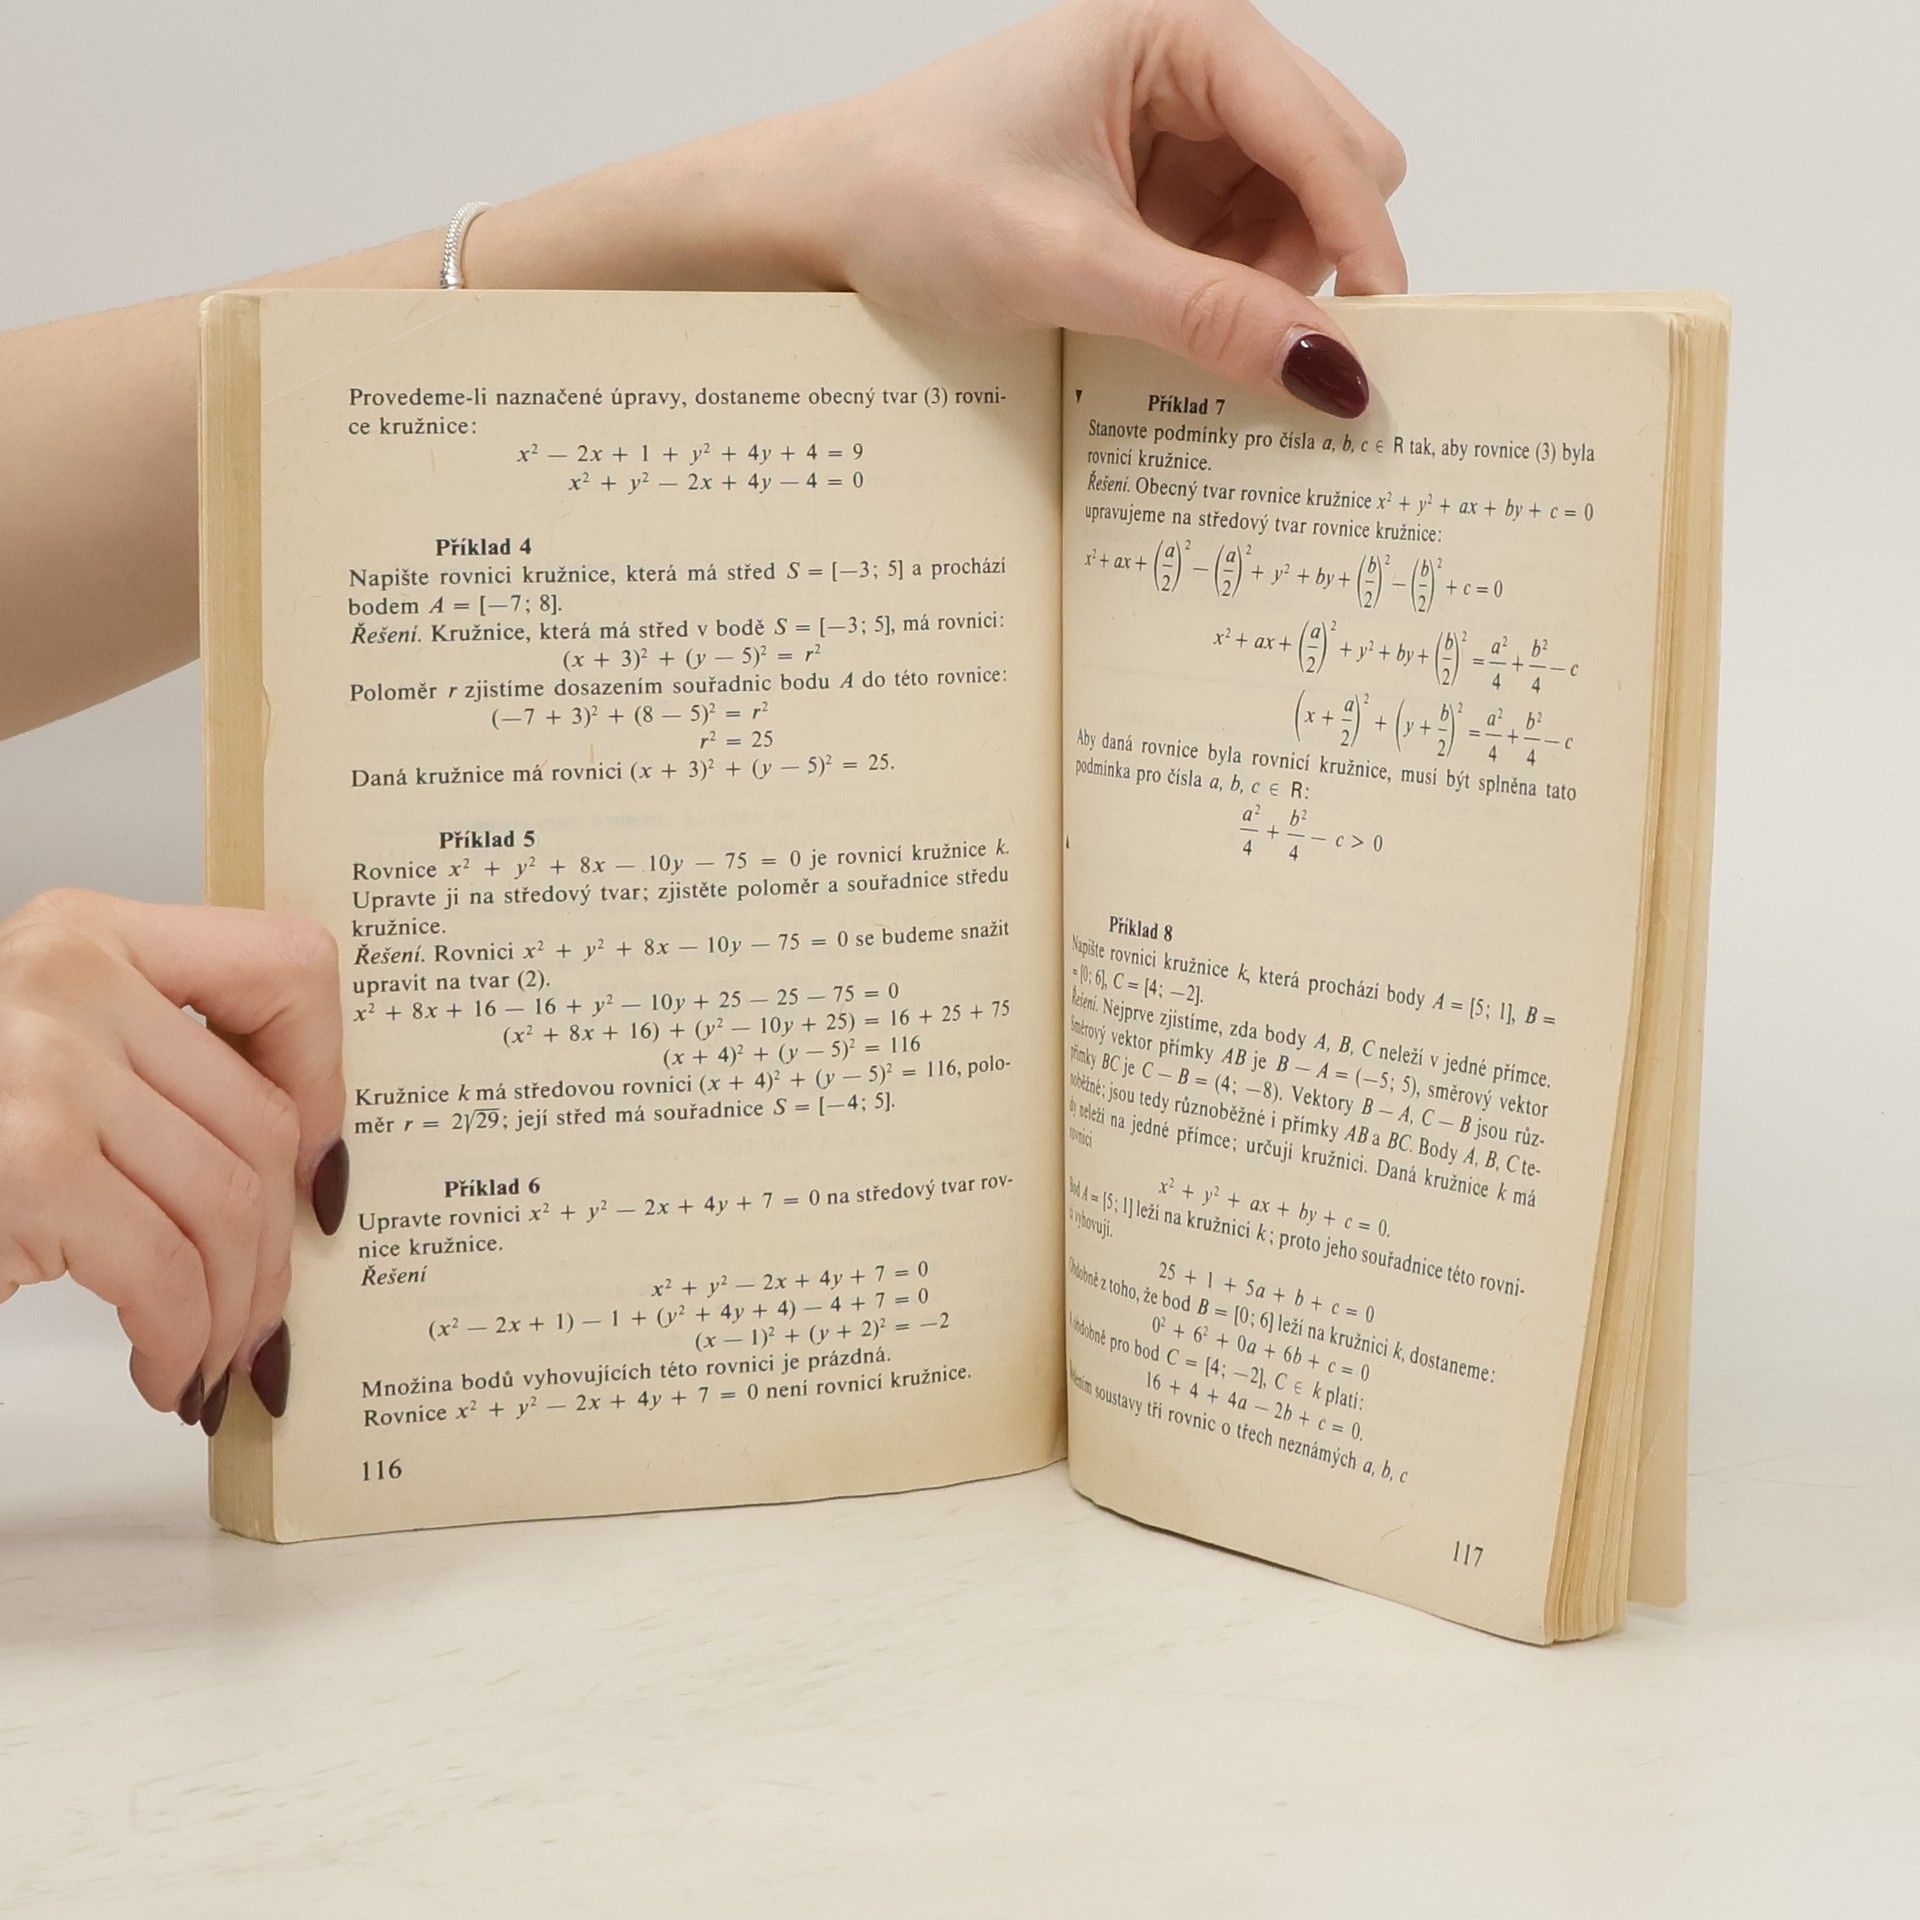 Provedeme-li naznačené úpravy, dostaneme obecný tvar (3) rovni-
ce kružnice:
x² — 2x + 1 + y² + 4y + 4 = 9
x² + y² — 2x + 4y — 4 = 0
Příklad 4
Napište rovnici kružnice, která má střed S = [—3; 5] a prochází
bodem A = [—7; 8].
Řešení. Kružnice, která má střed v bodě S = [—3; 5], má rovnici:
(x + 3)² + (y — 5)² = r²
Poloměr r zjistíme dosazením souřadnic bodu A do této rovnice:
(—7 + 3)² + (8 — 5)² = r²
r² = 25
Daná kružnice má rovnici (x + 3)² + (y — 5)² = 25.
Příklad 5
Rovnice x² + y² + 8x — 10y — 75 = 0 je rovnicí kružnice k.
Upravte ji na středový tvar; zjistěte poloměr a souřadnice středu
kružnice.
Řešení. Rovnici x² + y² + 8x — 10y — 75 = 0 se budeme snažit
upravit na tvar (2).
x² + 8x + 16 — 16 + y² — 10y + 25 — 25 — 75 = 0
(x² + 8x + 16) + (y² — 10y + 25) = 16 + 25 + 75
(x + 4)² + (y — 5)² = 116
Kružnice k má středovou rovnici (x + 4)² + (y — 5)² = 116, polo-
měr r = 2√29; její střed má souřadnice S = [—4; 5].
Příklad 6
Upravte rovnici x² + y² — 2x + 4y + 7 = 0 na středový tvar rov-
nice kružnice.
Řešení
x² + y² — 2x + 4y + 7 = 0
(x² — 2x + 1) — 1 + (y² + 4y + 4) — 4 + 7 = 0
(x — 1)² + (y + 2)² = —2
Množina bodů vyhovujících této rovnici je prázdná.
Rovnice x² + y² — 2x + 4y + 7 = 0 není rovnicí kružnice.
116
Příklad 7
Stanovte podmínky pro čísla a, b, c ∈ R tak, aby rovnice (3) byla
rovnicí kružnice.
Řešení. Obecný tvar rovnice kružnice x² + y² + ax + by + c = 0
upravujeme na středový tvar rovnice kružnice:
x² + ax + (a/2)² — (a/2)² + y² + by + (b/2)² — (b/2)² + c = 0
x² + ax + (a/2)² + y² + by + (b/2)² = a²/4 + b²/4 — c
(x + a/2)² + (y + b/2)² = a²/4 + b²/4 — c
Aby daná rovnice byla rovnicí kružnice, musí být splněna tato
podmínka pro čísla a, b, c ∈ R:
a²/4 + b²/4 — c > 0
Příklad 8
Napište rovnici kružnice k, která prochází body A = [5; 1], B =
= [0; 6], C = [4; —2].
Řešení. Nejprve zjistíme, zda body A, B, C neleží v jedné přímce.
Směrový vektor přímky AB je B — A = (—5; 5), směrový vektor
přímky BC je C — B = (4; —8). Vektory B — A, C — B jsou růz-
noběžné; jsou tedy různoběžné i přímky AB a BC. Body A, B, C te-
dy neleží na jedné přímce; určují kružnici. Daná kružnice k má
rovnici
x² + y² + ax + by + c = 0.
Bod A = [5; 1] leží na kružnici k; proto jeho souřadnice této rovni-
ci vyhovují.
25 + 1 + 5a + b + c = 0
Obdobně z toho, že bod B = [0; 6] leží na kružnici k, dostaneme:
0² + 6² + 0a + 6b + c = 0
A obdobně pro bod C = [4; —2], C ∈ k platí:
16 + 4 + 4a — 2b + c = 0.
soustavy tří rovnic o třech neznámých a, b, c
117